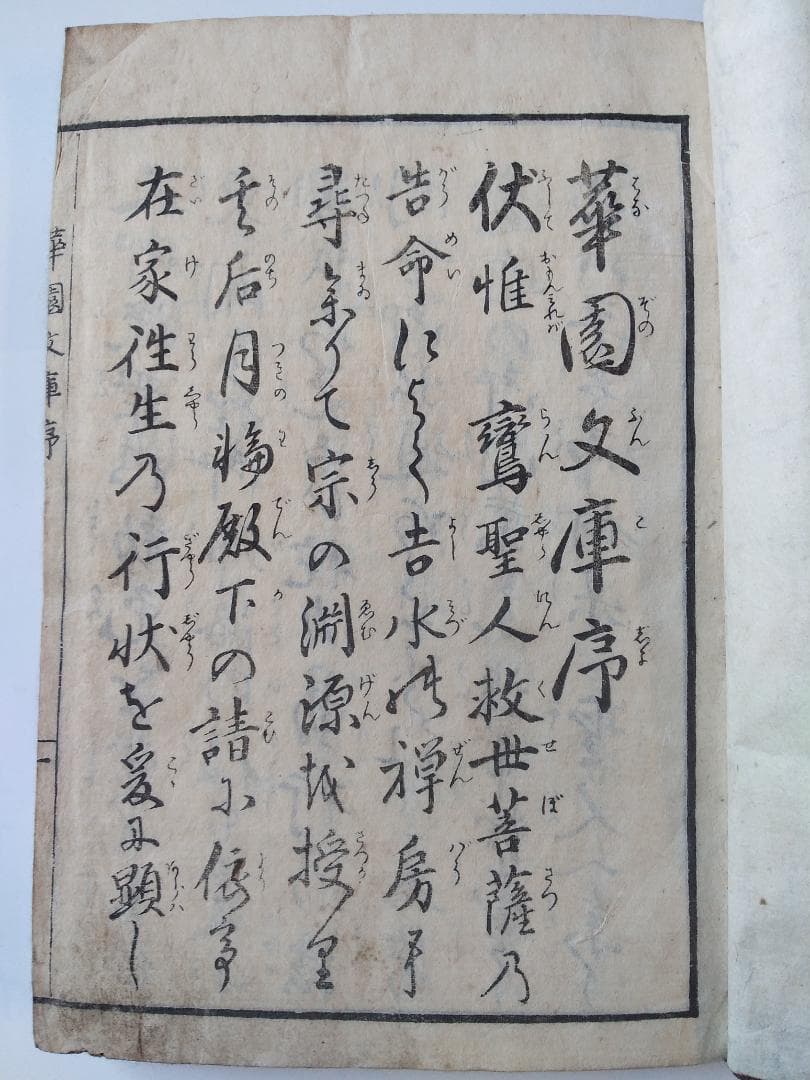 華園文庫序
伏惟　鸞聖人救世菩薩乃
告命によりて吉水の禅房に
尋参りて宗の淵源を授り
其后月輪殿下の請に依て
在家徃生乃行状を爰に顕し
華園文庫序
一